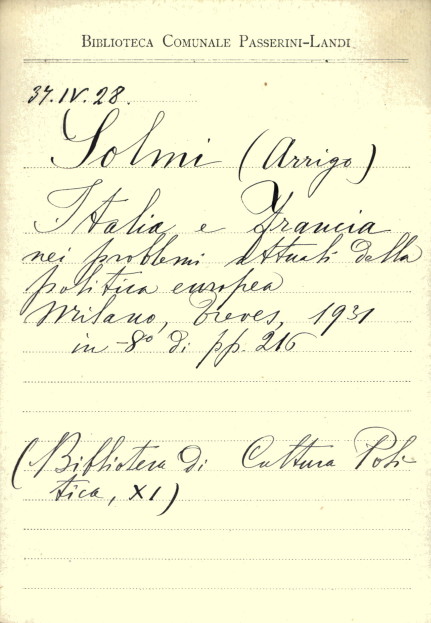 BIBLIOTECA COMUNALE PASSERINI-LANDI
37.IV.28.
Solmi (Arrigo)
Italia e Francia
nei problemi attuali della
politica europea
Milano, Treves, 1931
in-8º di pp. 216
(Biblioteca di Cultura Poli-
tica, XI)